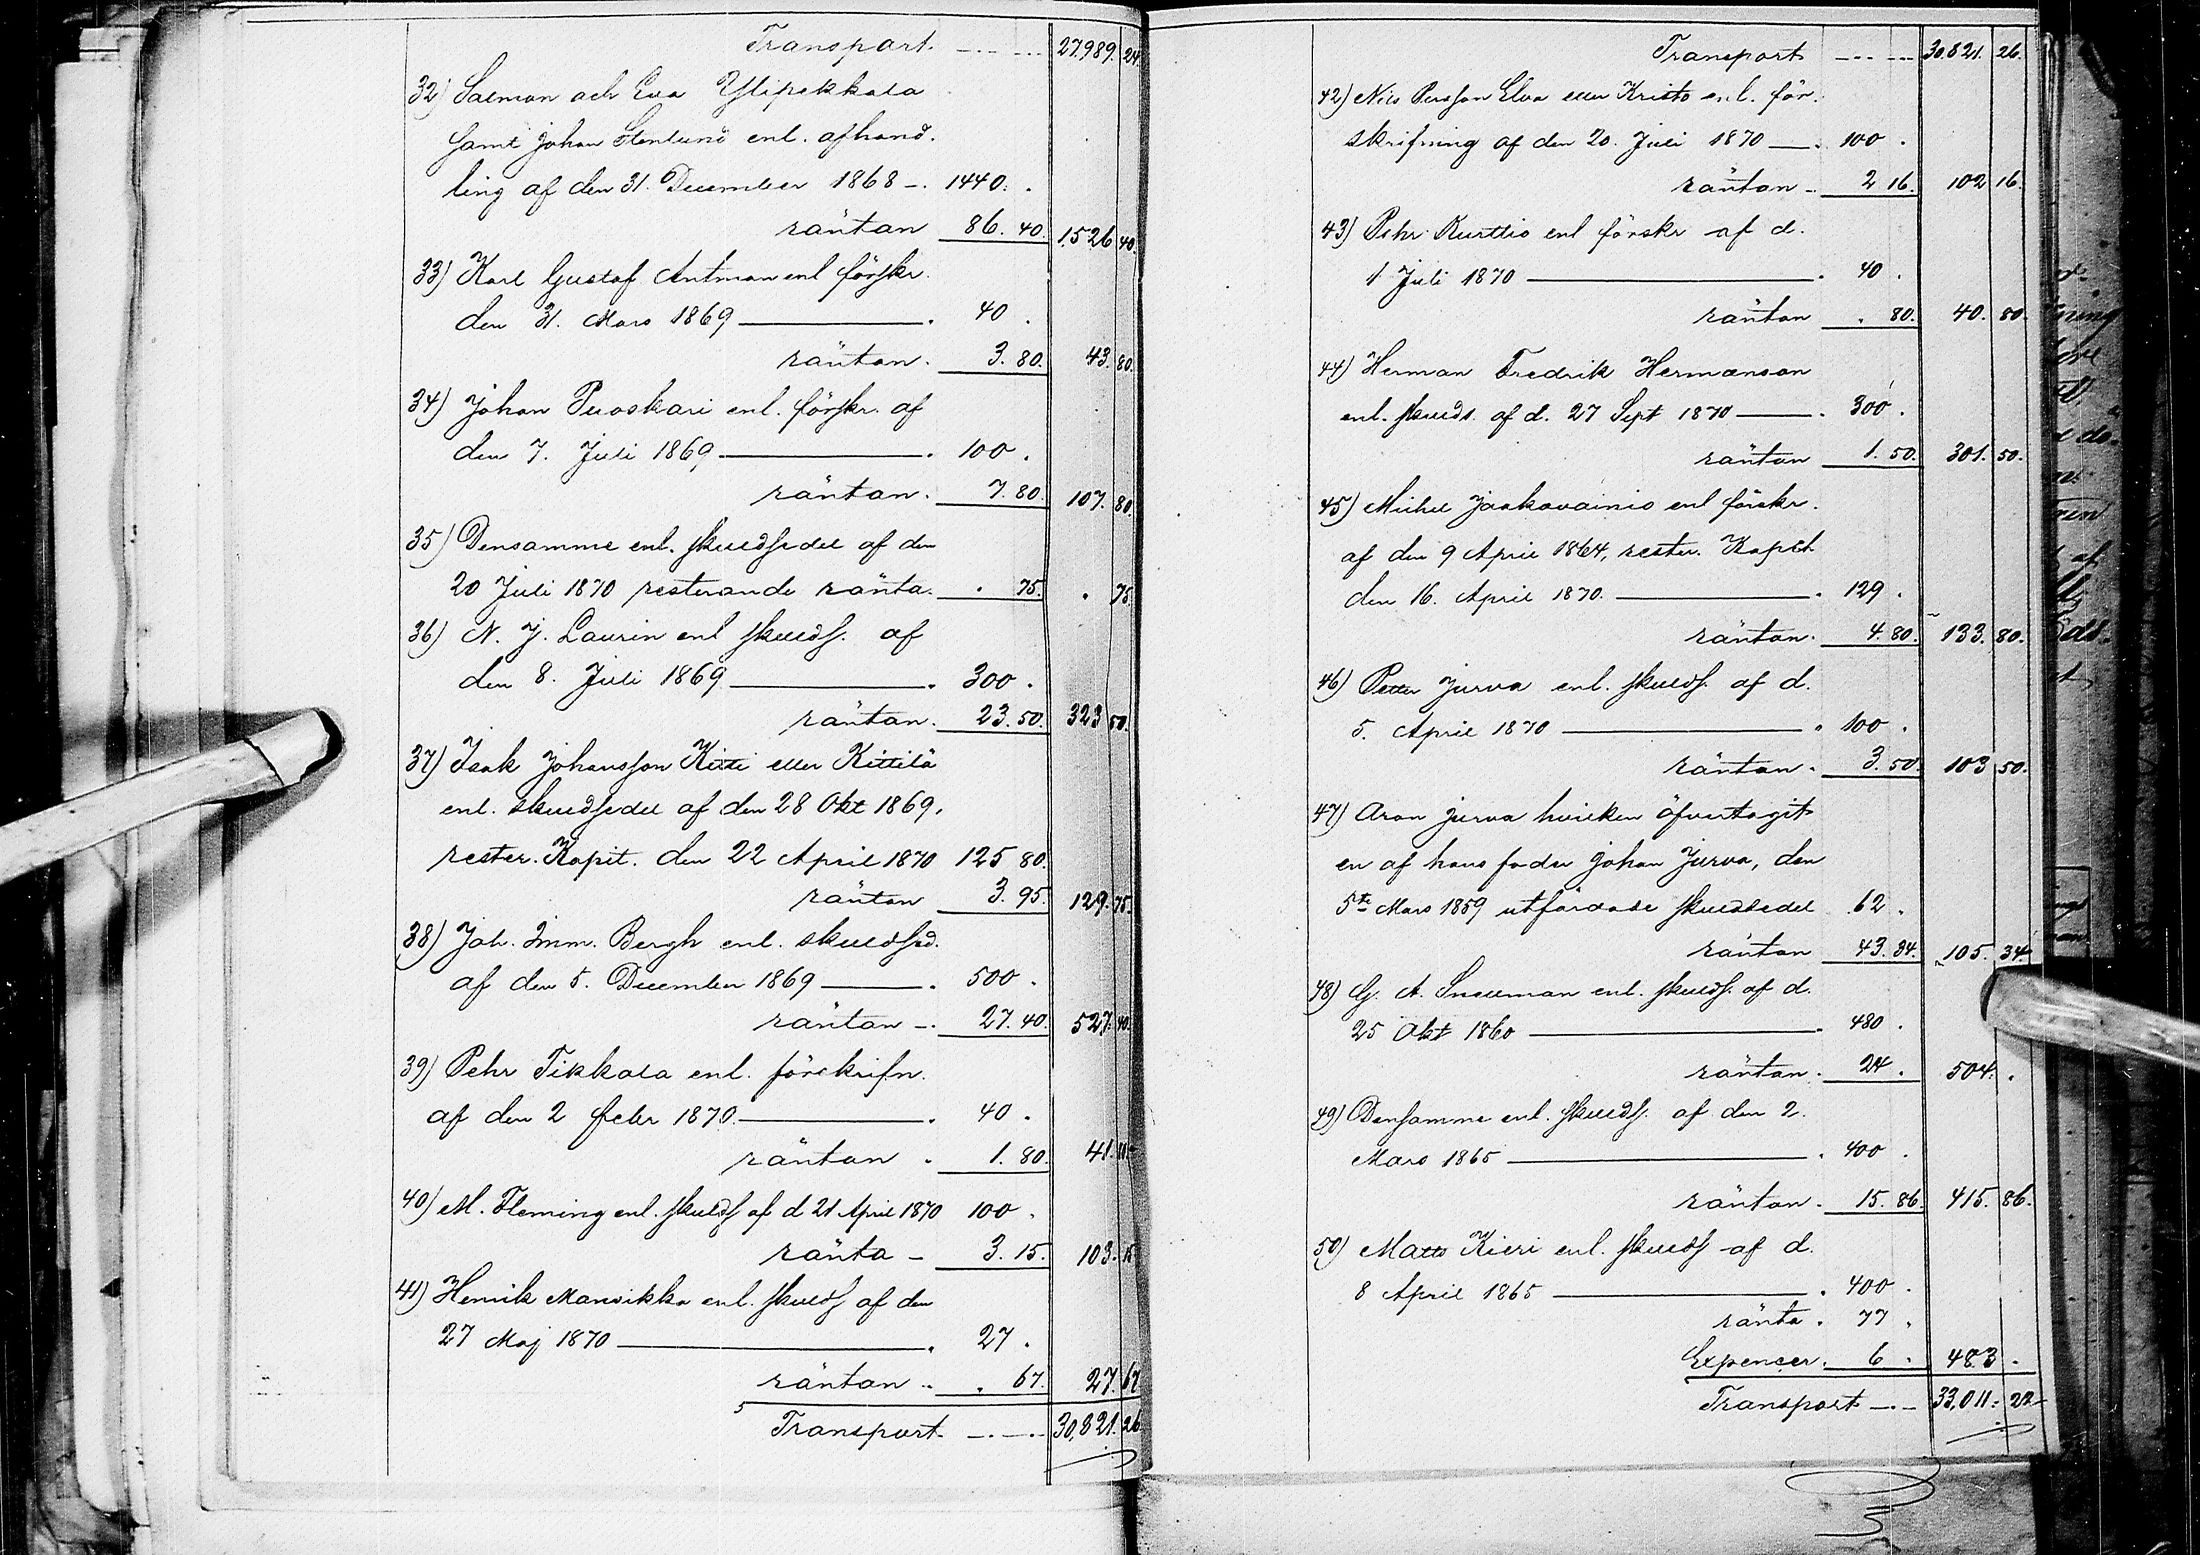 Transport. 27989. 24.
32) Salmon och Eva Ylipekkala
samt Johan Stenlund enl. afhand-
ling af den 31. December 1868 1440.
räntan 86. 40. 1526 40.
33) Karl Gustaf Antman enl förskr.
den 31. Mars 1869 40.
räntan. 3. 80. 43. 80.
34) Johan Puoskari enl. förskr. af
den 7. Juli 1869 100.
räntan. 7. 80. 107. 80.
35) Densamme enl. skuldsedel af den
20 Juli 1870 resterande ränta. 75. 75.
36) N. J. Laurin enl skulds. af
den 8. Juli 1869 300.
räntan. 23. 50. 323 50.
37) Isak Johansson Kitti eller Kittilä
enl. skuldsedel af den 28 Okt 1869,
rester. Kapit. den 22 April 1870 125 80.
räntan 3. 95. 129. 75.
38) Joh. Imm. Bergh enl. skuldsed.
af den 5. December 1869 500.
räntan 27. 40. 527. 40.
39) Pehr Tikkala enl. förskrifn.
af den 2 Febr 1870. 40.
räntan 1. 80. 41. 80.
40) M. Fleming enl. skulds af d 21 April 1870 100.
ränta 3. 15. 103. 15.
41) Henrik Mansikka enl. skulds af den
27 Maj 1870 27.
räntan 67. 27. 67
Transport. 30,821. 26
Transport 30.821. 26.
42) Nils Persson Elva eller Kristo enl. för-
skrifning af den 20. Juli 1870 100.
räntan 2 16. 102 16.
43) Pehr Kurttio enl förskr af d.
1 Juli 1870 40.
räntan . 80. 40. 80.
44) Herman Fredrik Hermanson
enl. skulds. af d. 27 Sept 1870 300.
räntan 1. 50. 301. 50.
45) Michel Jaakovainio enl förskr.
af den 9 April 1864, rester. Kapit
den 16. April 1870. 129.
räntan. 4. 80. 133. 80.
46) Petter Jurva enl. skulds. af d.
5. April 1870 100.
räntan. 3. 50. 103 50.
47) Aron Jurva hvilken öfvertagit
en af hans fader Johan Jurva, den
5te Mars 1859 utfärdade skuldsedel 62.
räntan 43. 34. 105. 34
48) G. A. Snellman enl. skulds. af d.
25 Okt 1860 480.
räntan. 24. 504.
49) Densamme enl. skulds. af den 2.
Mars 1865 400.
räntan. 15. 86. 415. 86.
50) Matts Kieri enl. skulds af d.
8 April 1865 400.
ränta. 77.
Expenser. 6. 483.
Transport 33,011: 22